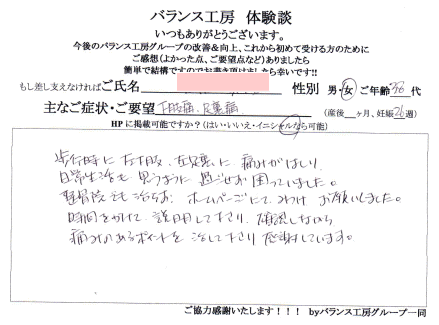 バランス工房 体験談
いつもありがとうございます。
今後のバランス工房グループの改善&向上、これから初めて受ける方のために
ご感想(よかった点、ご要望点など)ありましたら
簡単で結構ですのでお書き頂けましたら幸いです!!
もし差し支えなければご氏名 性別 男・女 ご年齢36代
主なご症状・ご要望 下肢痛、足裏痛 (産後 ヶ月、妊娠26週)
HPに掲載可能ですか?(はい・いいえ・イニシャルなら可能)
歩行時に左下肢、左足裏に痛みがはしり
日常生活も思うように過ごせず困っていました。
整骨院でも治らず、ホームページにてみつけお願いしました。
時間をかけて説明して下さり、確認しながら
痛みのあるポイントを治して下さり感謝しています。
ご協力感謝いたします!!! byバランス工房グループ一同